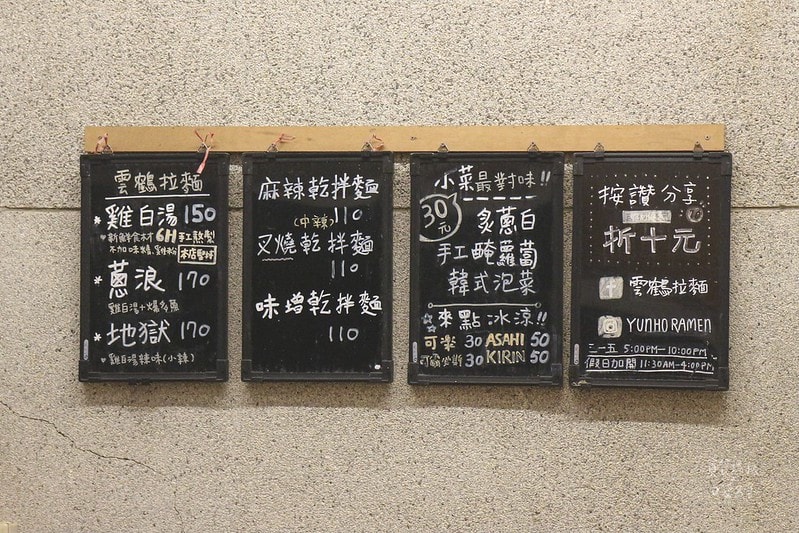 雲鶴拉麵
* 雞白湯 150
新鮮食材 6H 手工熬製
不加味精、雞粉 本店堅持
* 蔥浪 170
雞白湯+爆多蔥
* 地獄 170
雞白湯辣味(小辣)
麻辣乾拌麵
(中辣) 110
叉燒乾拌麵
110
味增乾拌麵
110
小菜最對味!!
30元
炙蔥白
手工醃蘿蔔
韓式泡菜
來點冰涼!!
可樂 30 ASAHI 50
可爾必斯 30 KIRIN 50
按讚分享
折十元
雲鶴拉麵
YUNHO RAMEN
三-一五 5:00PM-10:00PM
假日加開 11:30AM-4:00PM